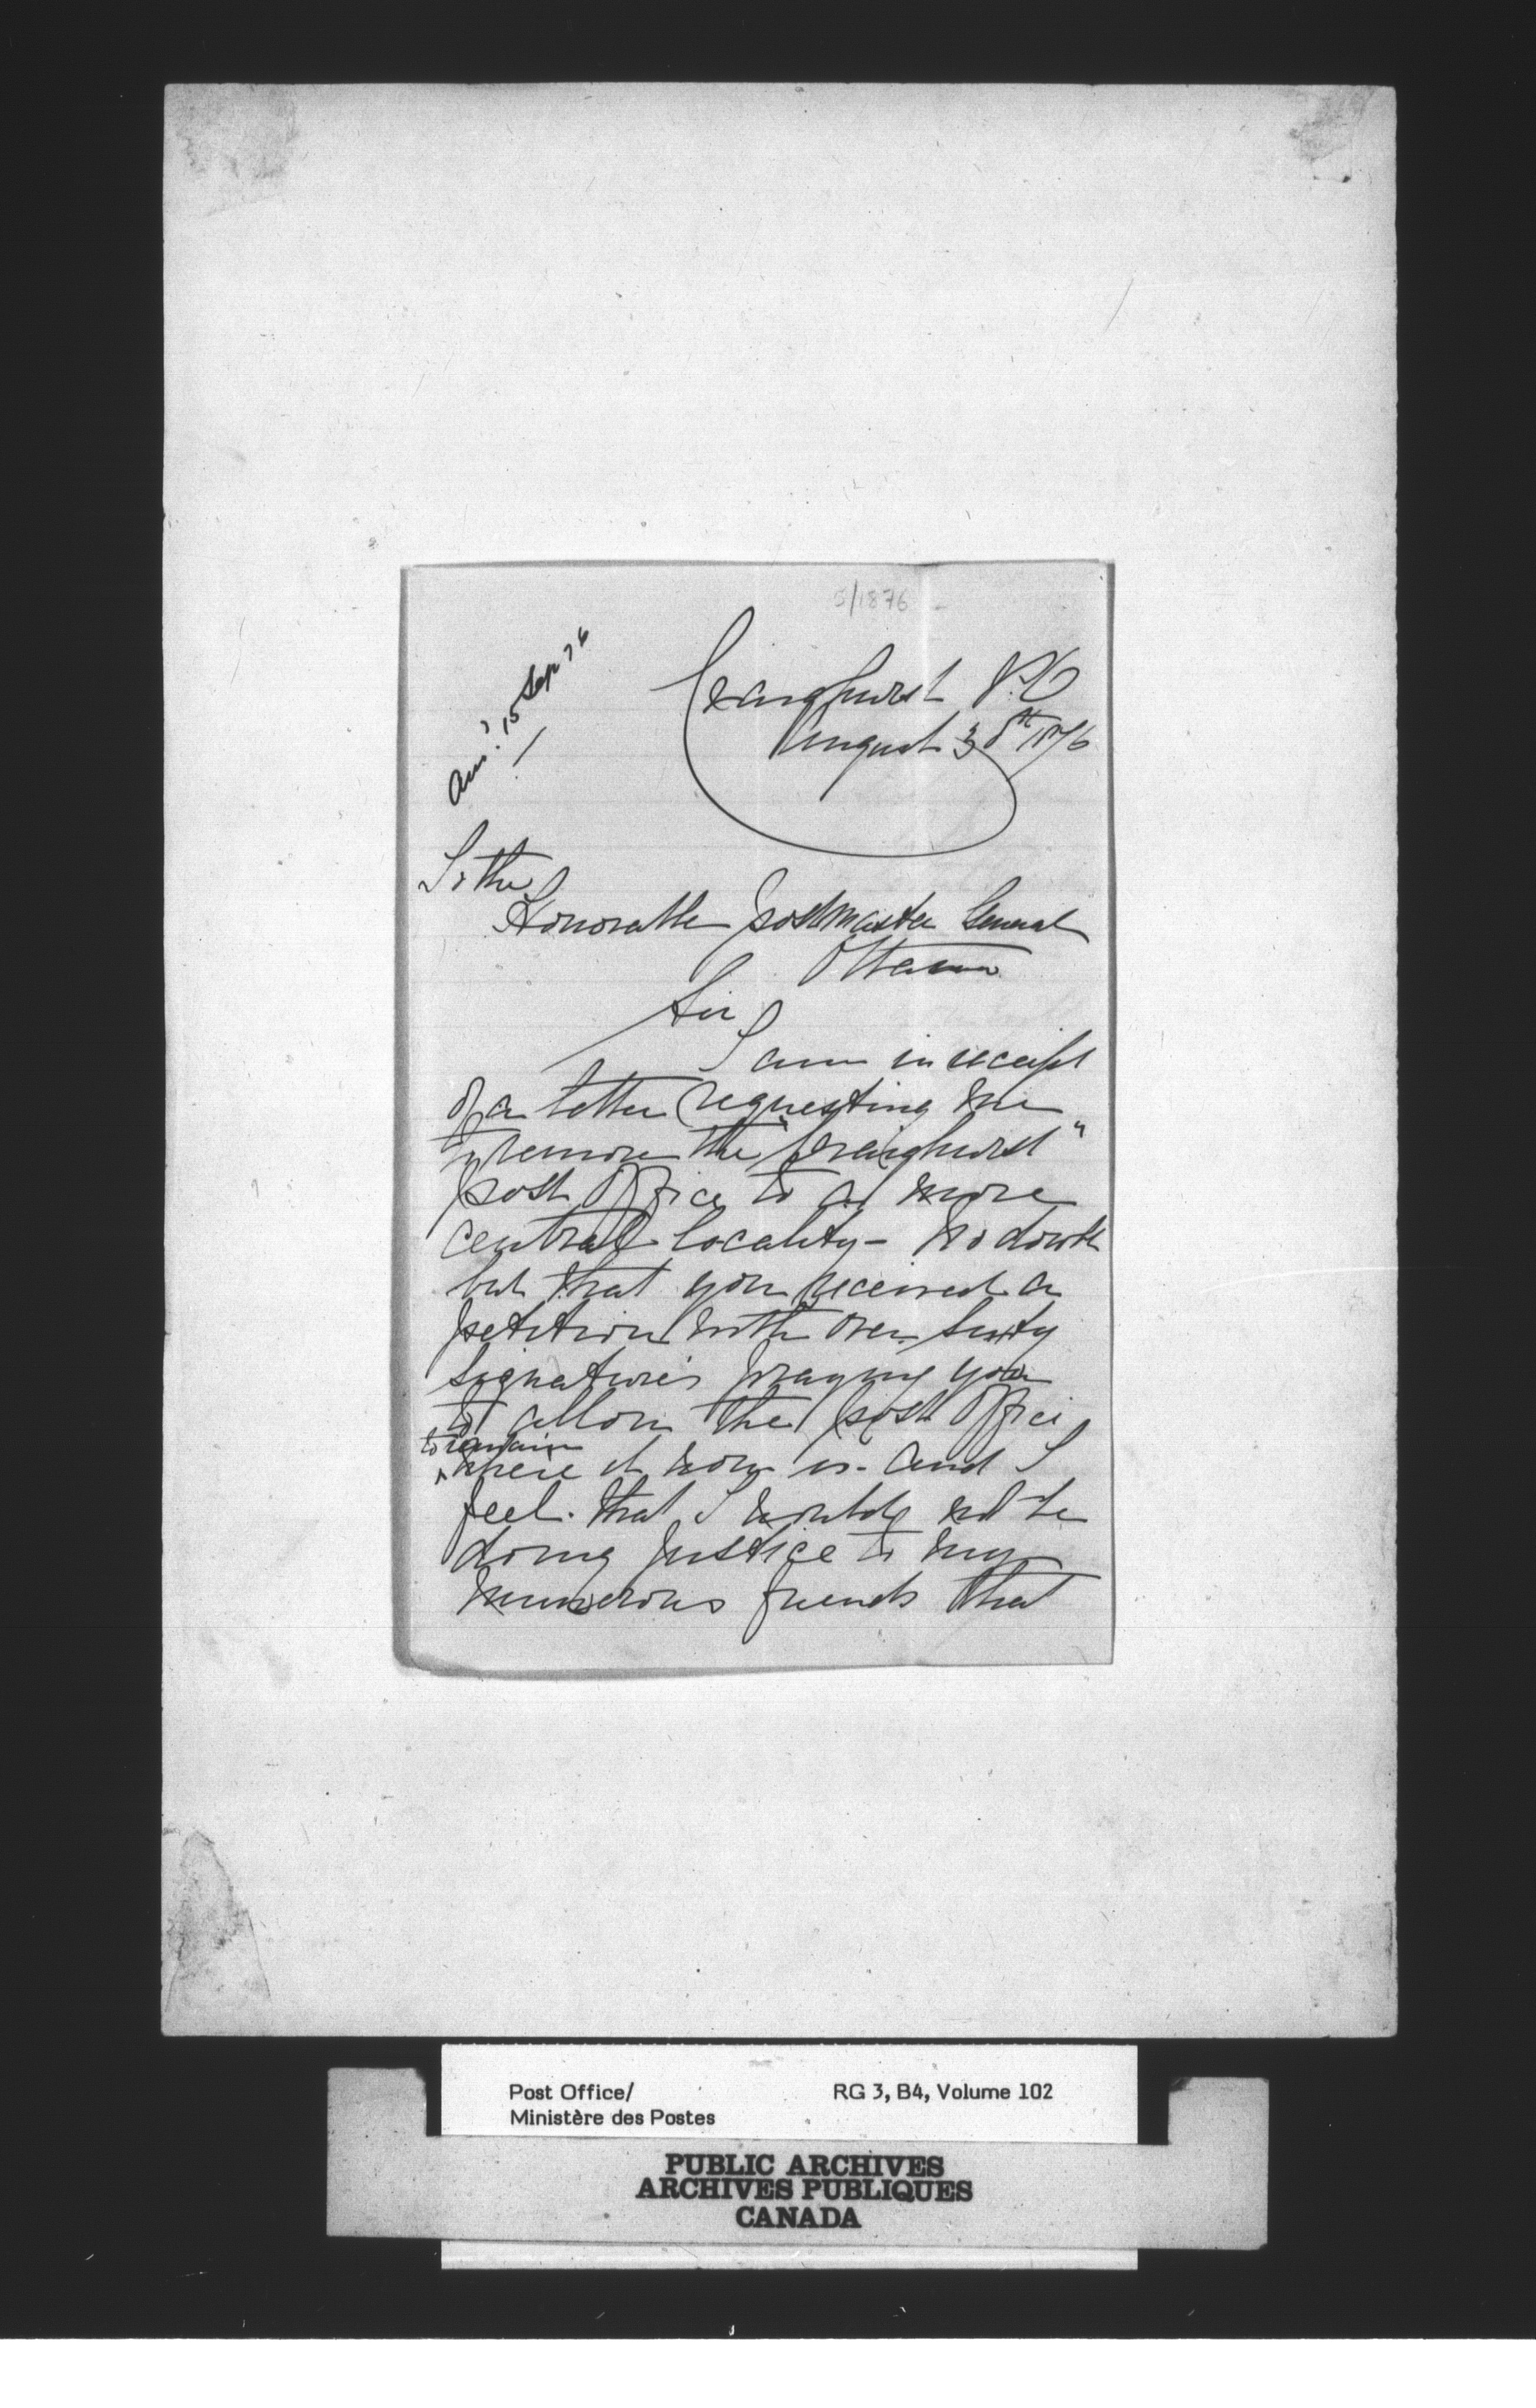 5/1876
Craighurst P.O
August 30th 1876
Ans. 15 Sep 76
To the
Honorable postmaster General
Ottawa
Sir
I am in receipt
of a letter requesting me
to remove the "Craighurst"
post office to a more
central locality - No doubt
but that you received a
petition with over sixty
signatures praying you
to allow the post office
to remain
where it now is - and I
feel that I would not be
doing justice to my
numerous friends that
Post Office/
Ministère des Postes
RG 3, B4, Volume 102
PUBLIC ARCHIVES
ARCHIVES PUBLIQUES
CANADA